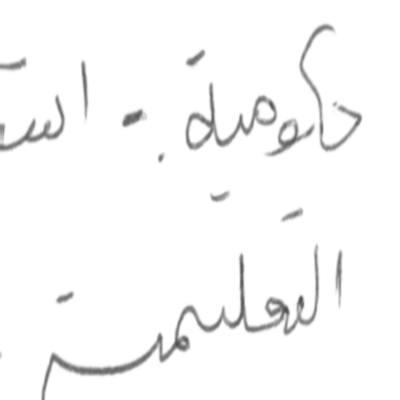 حكومية - است
التعليمية